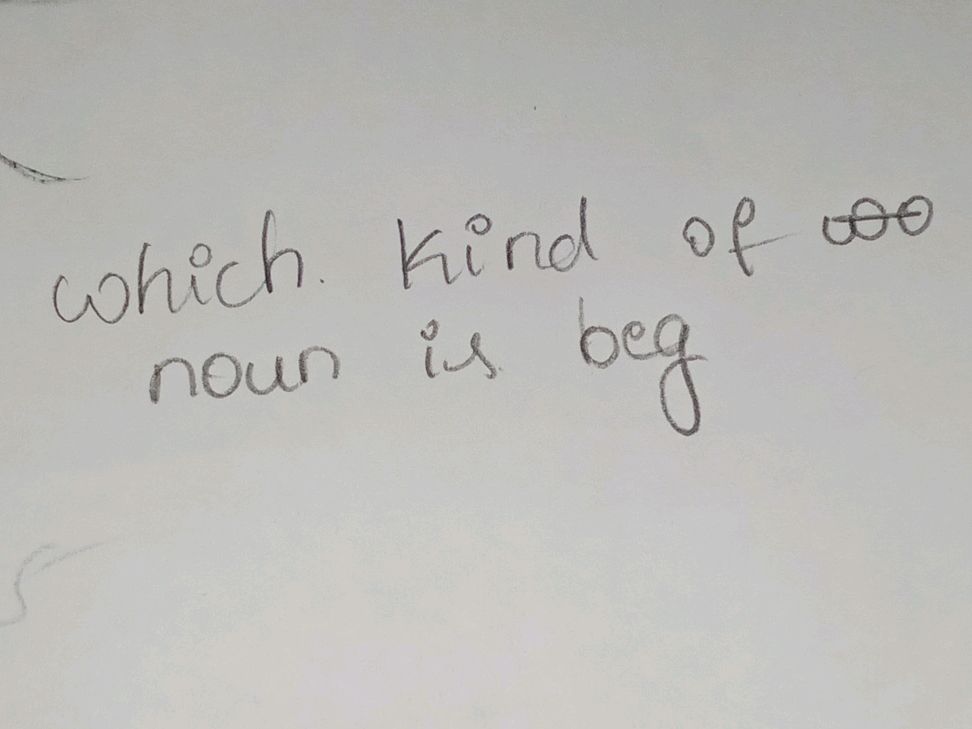 which. kind of
noun is beg